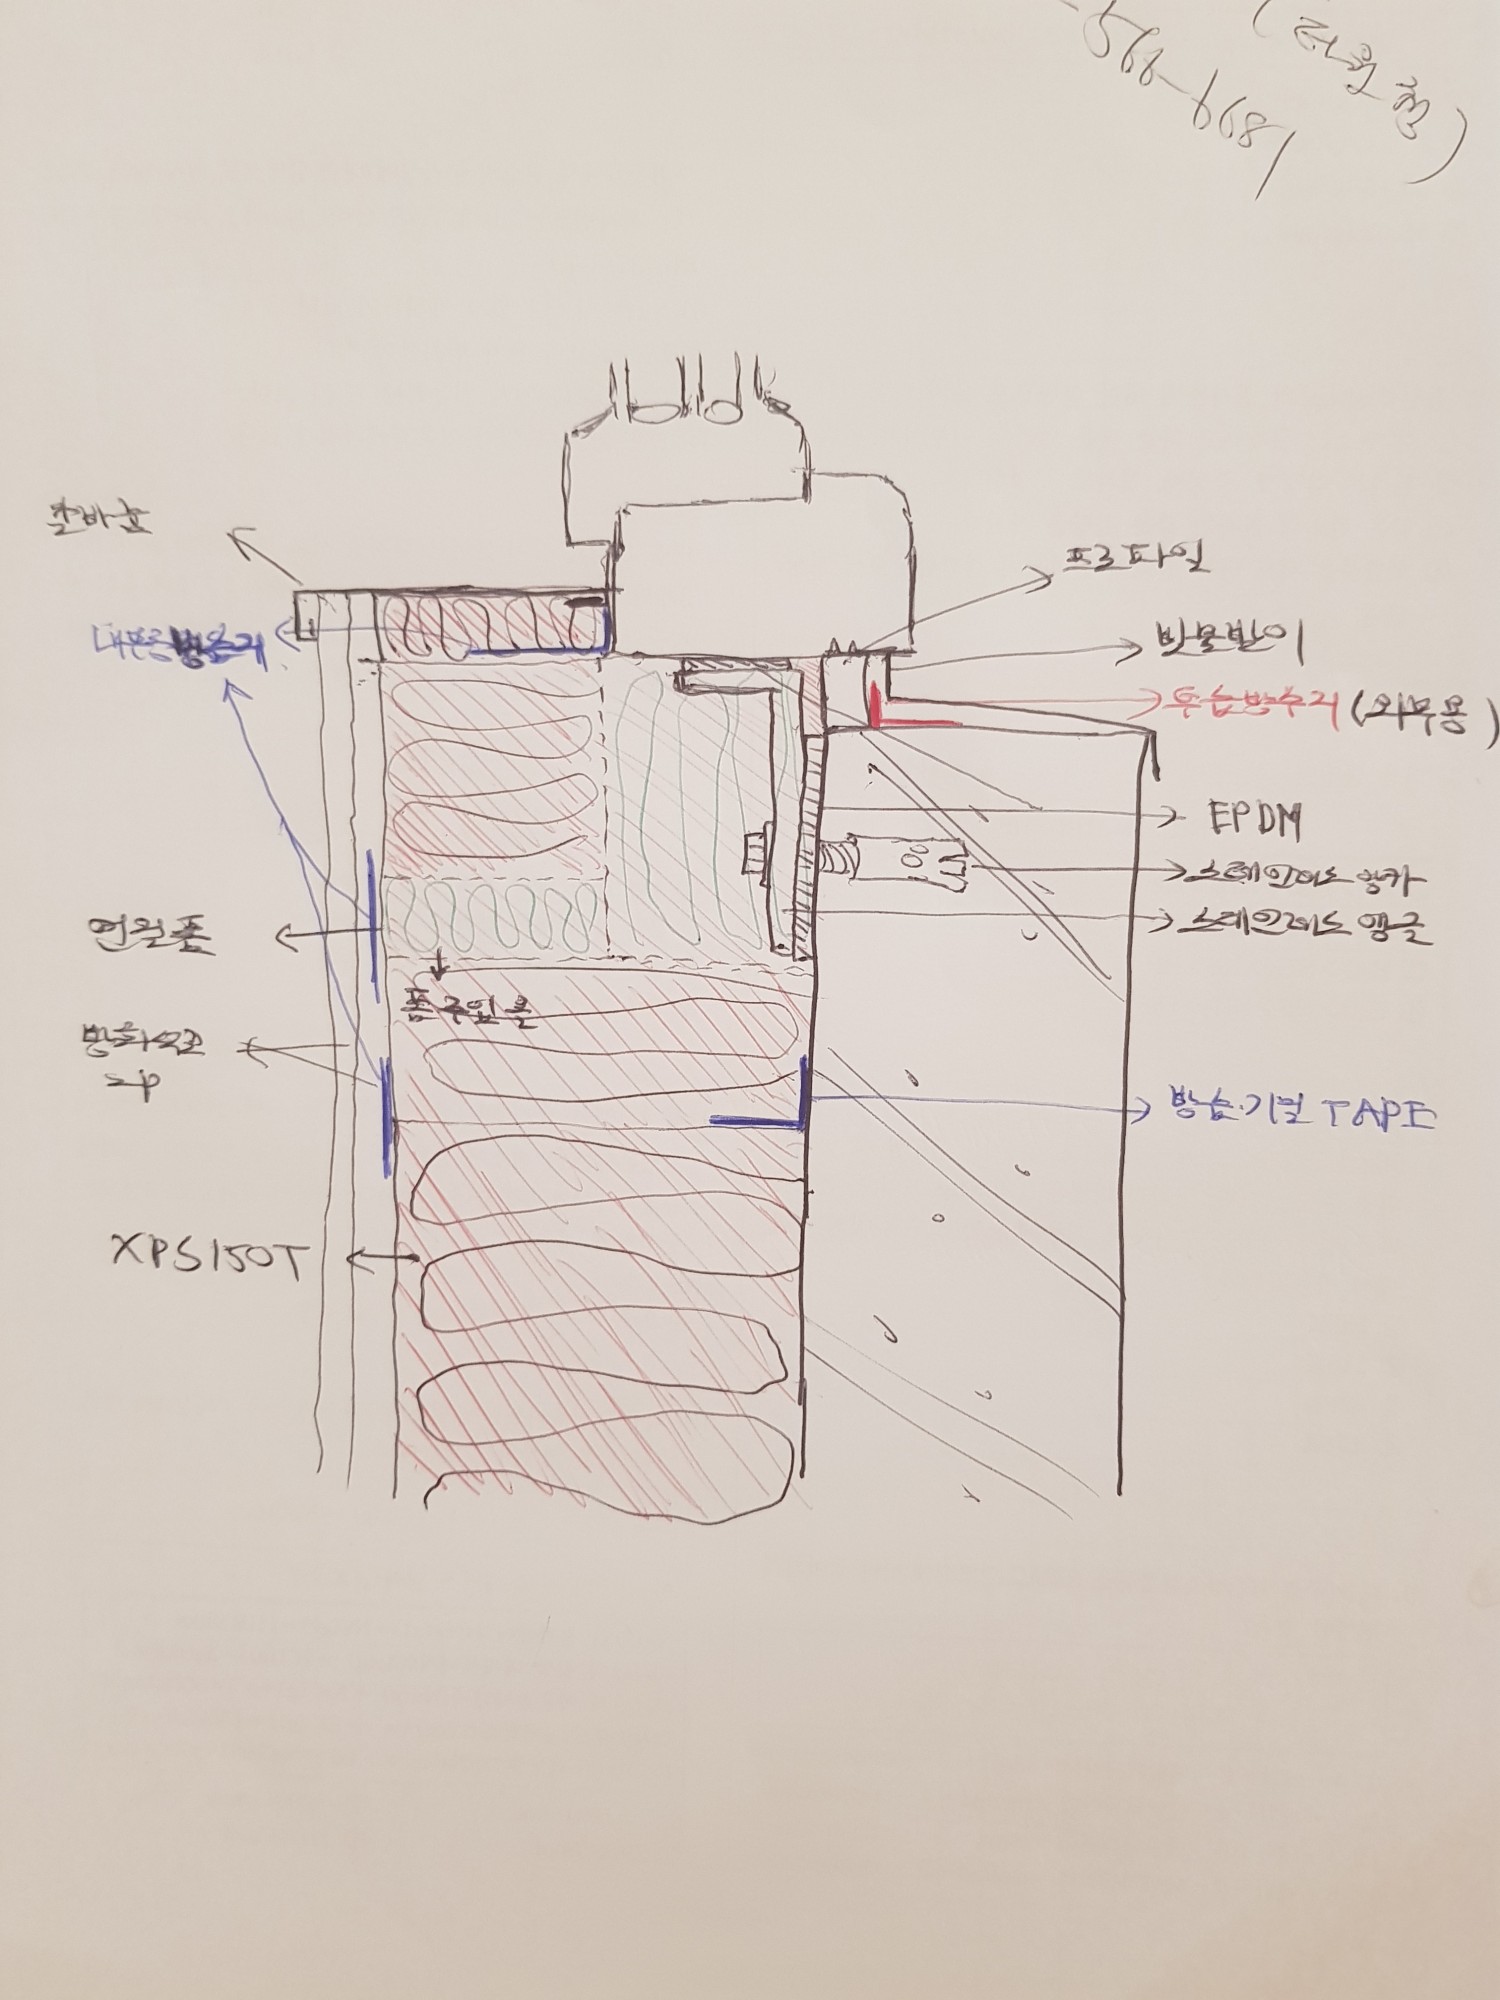 566-6681
프로파일
빗물받이
투습방수지 (외부용)
EPDM
스테인레스 앙카
스테인레스 앵글
방습·기밀 TAPE
내부용 방습지
연질폼
폼 주입 홀
방화석고
2P
XPS150T